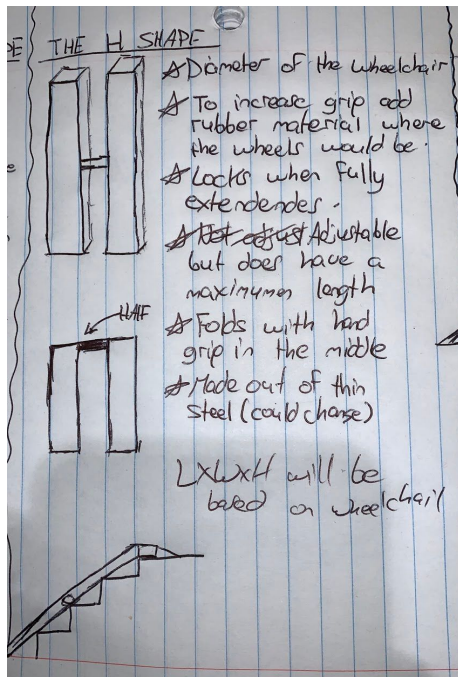 THE H SHAPE
Diameter of the wheelchair
To increase grip add
rubber material where
the wheels would be.
Locks when fully
extendendes.
Not adjust Adjustable
but does have a
maximumen length
HALF
Folds with hand
grip in the middle
Made out of thin
Steel (could change)
LXWXH will be
based on wheelchail